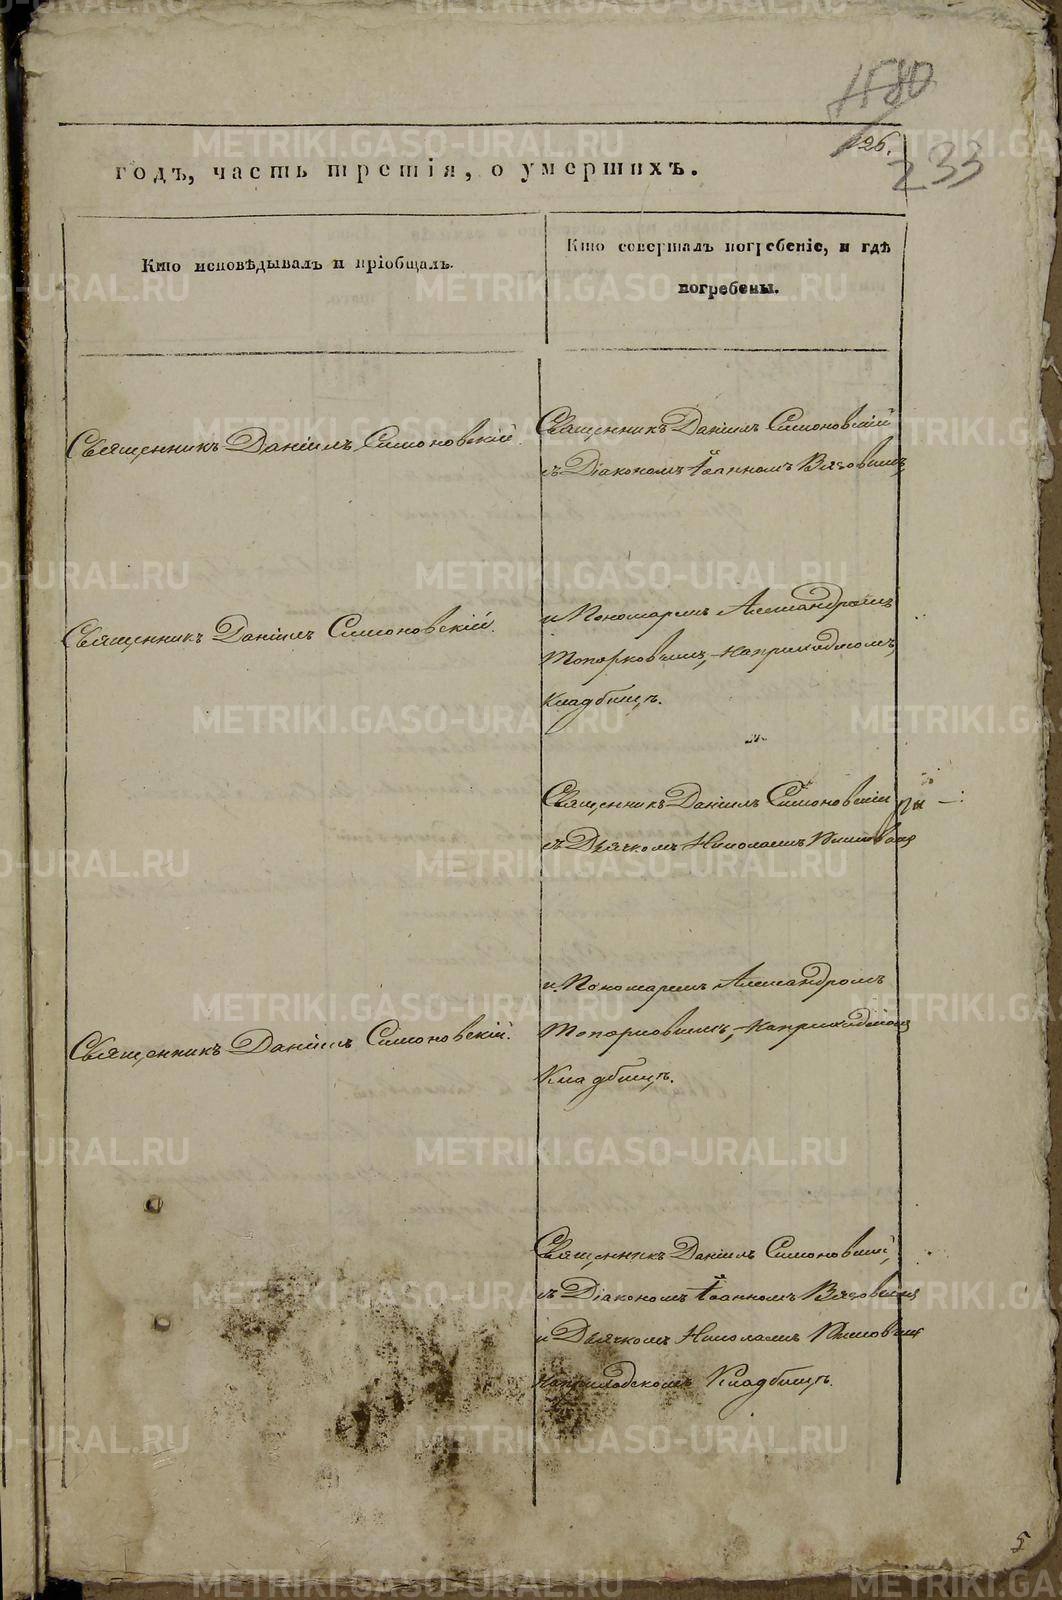 1580
126.
233
годъ, часть третія, о умершихъ.
Кто исповѣдывалъ и пріобщалъ.
Кто совершалъ погребеніе, и гдѣ
погребены.
Священникъ Даніилъ Симоновскій.
Священникъ Даніилъ Симоновскій
съ Діакономъ Іоанномъ Вязовымъ,
Священникъ Даніилъ Симоновскій.
и Пономаремъ Александромъ
Топорковымъ, на приходскомъ
Кладбищѣ.
Священникъ Даніилъ Симоновскій
съ Дьячкомъ Николаемъ
и Пономаремъ Александромъ
Топорковымъ, на приходскомъ
Кладбищѣ.
Священникъ Даніилъ Симоновскій.
Священникъ Даніилъ Симоновскій,
съ Діакономъ Іоанномъ Вязовымъ
и Дьячкомъ Николаемъ
на приходскомъ Кладбищѣ.
5
METRIKI.GASO-URAL.RU